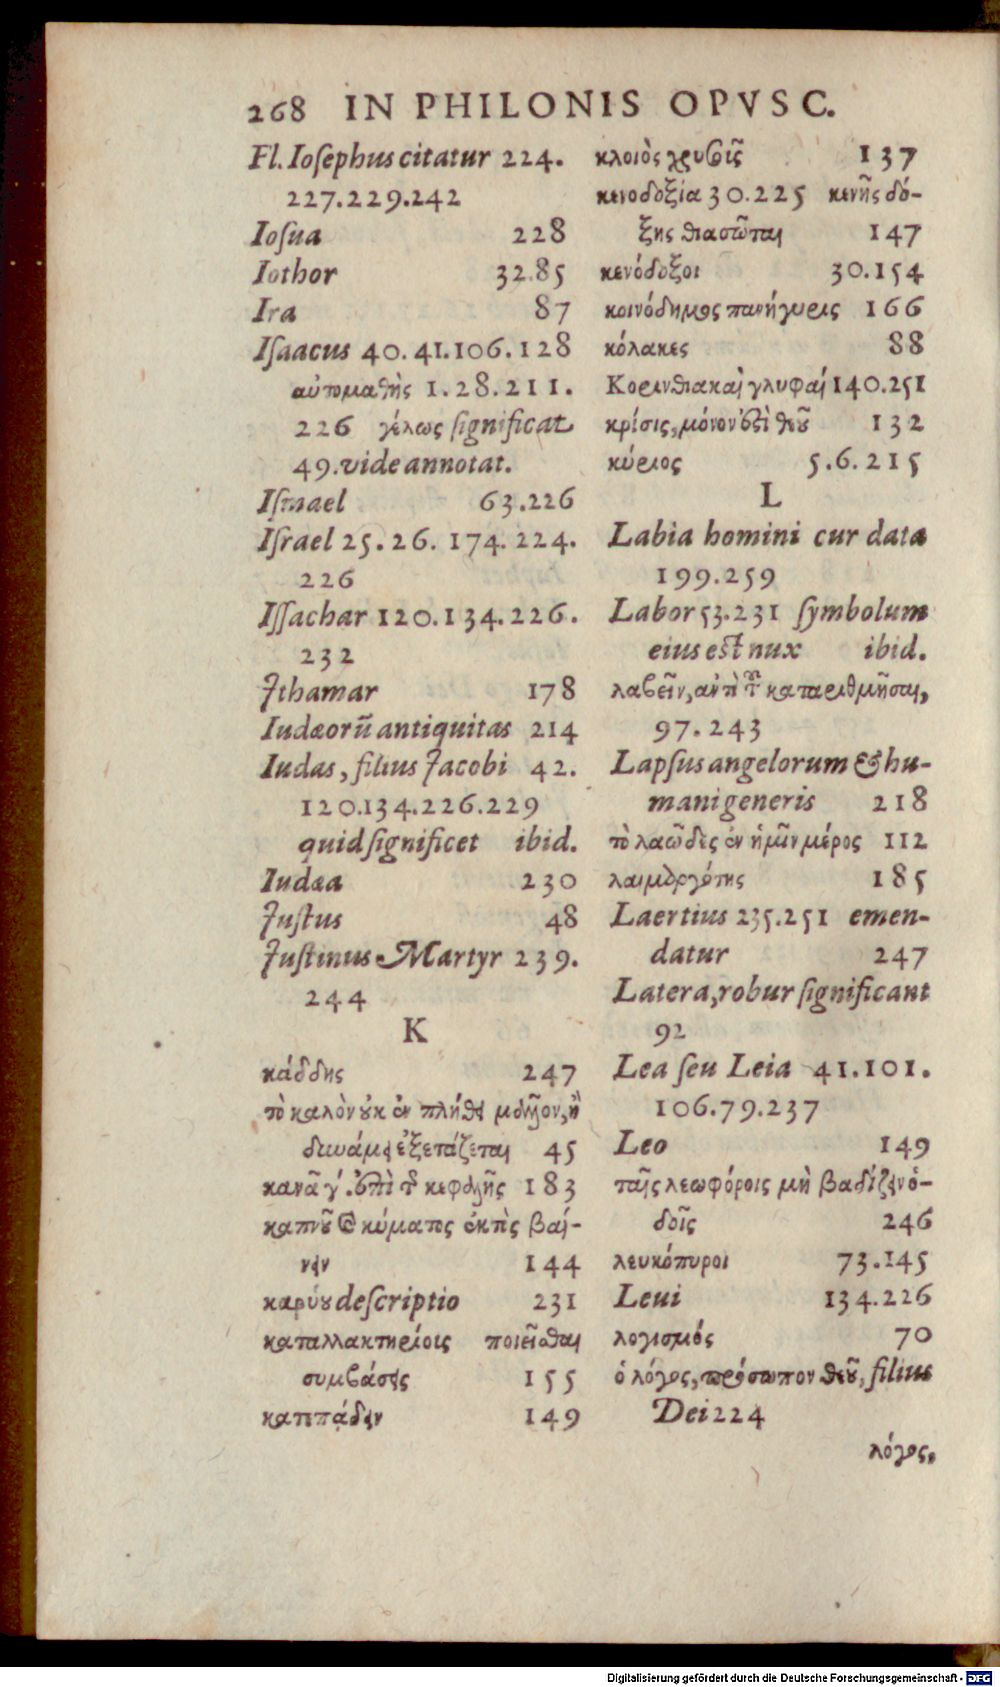 268 IN PHILONIS OPVSC.
Fl. Ioſephus citatur 224.
227.229.242
Ioſua 228
Iothor 32.85
Ira 87
Iſaacus 40.41.106.128
αὐτομαθὴς 1.28.211.
226 γέλως ſignificat
49. vide annotat.
Iſmael 63.226
Iſrael 25.26.174.224.
226
Iſſachar 120.134.226.
232
Ithamar 178
Iudæorũ antiquitas 214
Iudas, filius Jacobi 42.
120.134.226.229
quid ſignificet ibid.
Iudæa 230
Juſtus 48
Juſtinus Martyr 239.
244
K
κάδδης 247
τὸ καλὸν ȣ̓κ ἐν πλήθει μᾶλλον, ἢ
δυνάμει ἐξετάζεται 45
κανᾶ γ΄. ἐπὶ τ̃ κεφαλῆς 183
καπνοῦ καὶ κύματος ἐκτὸς βαί-
νειν 144
καρύου deſcriptio 231
καταλλακτηρίοις ποιεῖσθαι
συμβάσεις 155
κατεπᾴδειν 149
κλοιὸς χρυσοῦς 137
κενοδοξία 30.225 κενῆς δό-
ξης θιασῶται 147
κενόδοξοι 30.154
κοινόδημος πανήγυρις 166
κόλακες 88
Κορινθιακαὶ γλυφαί 140.251
κρίσις, μόνον ἐπὶ θεοῦ 132
κύριος 5.6.215
L
Labia homini cur data
199.259
Labor 53.231 ſymbolum
eius eſt nux ibid.
λαβεῖν, ἀντὶ τ̃ καταριθμῆσαι,
97.243
Lapſus angelorum & hu-
mani generis 218
τὸ λαῶδες ἐν ἡμῖν μέρος 112
λαιμαργότης 185
Laertius 235.251 emen-
datur 247
Latera, robur ſignificant
92
Lea ſeu Leia 41.101.
106.79.237
Leo 149
ταῖς λεωφόροις μὴ βαδίζειν ὁ-
δοῖς 246
λευκόπυροι 73.145
Leui 134.226
λογισμός 70
ὁ λόγος, πρόσωπον θεοῦ, filius
Dei 224
λόγος,
Digitalisierung gefördert durch die Deutsche Forschungsgemeinschaft - DFG